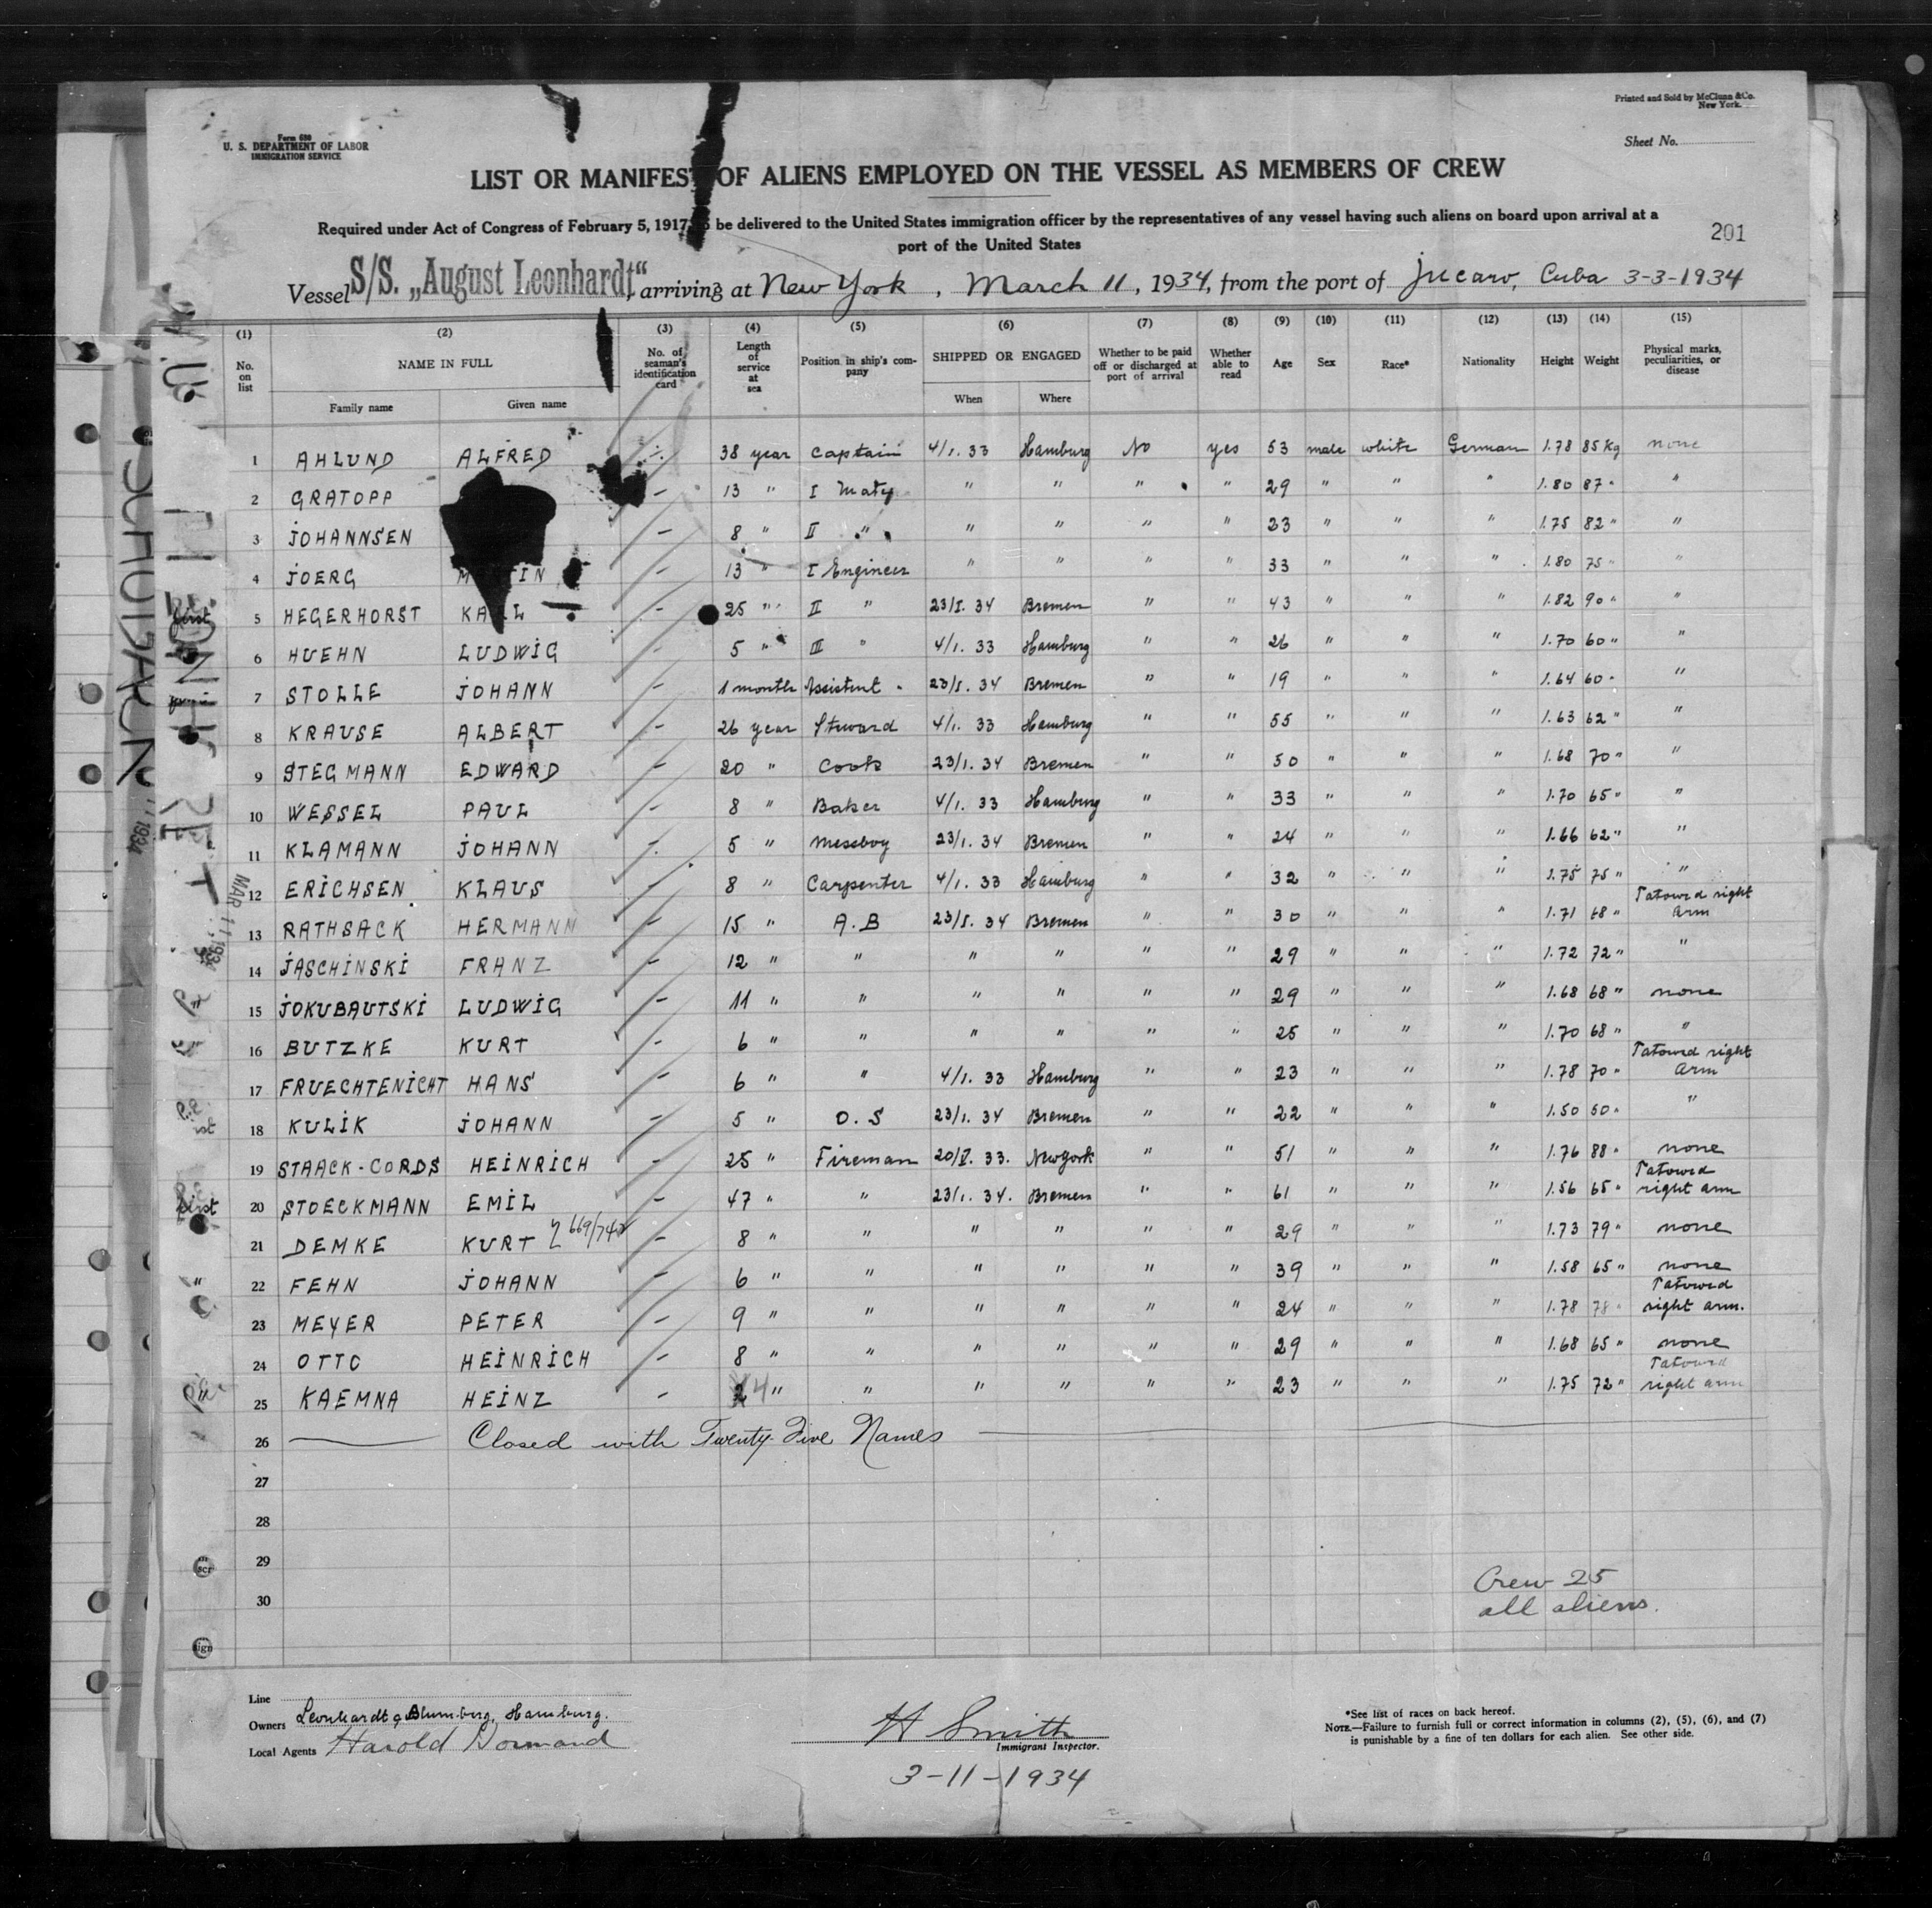 Printed and Sold by McClunn & Co.
New York.
Form 680
U. S. DEPARTMENT OF LABOR
IMMIGRATION SERVICE
Sheet No.
LIST OR MANIFEST OF ALIENS EMPLOYED ON THE VESSEL AS MEMBERS OF CREW
Required under Act of Congress of February 5, 1917, be delivered to the United States immigration officer by the representatives of any vessel having such aliens on board upon arrival at a
port of the United States
201
Vessel S/S. „August Leonhardt", arriving at New York, March 11, 1934, from the port of Jucaro, Cuba 3-3-1934
(1) (2) (3) (4) (5) (6) (7) (8) (9) (10) (11) (12) (13) (14) (15)
No. on list NAME IN FULL No. of seaman's identification card Length of service at sea Position in ship's company SHIPPED OR ENGAGED Whether to be paid off or discharged at port of arrival Whether able to read Age Sex Race* Nationality Height Weight Physical marks, peculiarities, or disease
Family name Given name When Where
1 AHLUND ALFRED 38 year Captain 4/1. 33 Hamburg No yes 53 male white German 1.78 85 Kg none
2 GRATOPP — 13 " I Maty " " " " 29 " " " 1.80 87 " "
3 JOHANNSEN — 8 " II " " " " " 23 " " " 1.75 82 " "
4 JOERG — 13 " I Engineer " " " " 33 " " " 1.80 75 " "
5 HEGERHORST KARL — 25 " II " 23/I. 34 Bremen " " 43 " " " 1.82 90 " "
6 HUEHN LUDWIG — 5 " III " 4/1. 33 Hamburg " " 26 " " " 1.70 60 " "
7 STOLLE JOHANN — 1 month Assistent 23/I. 34 Bremen " " 19 " " " 1.64 60 " "
8 KRAUSE ALBERT — 26 year Stuward 4/1. 33 Hamburg " " 55 " " " 1.63 62 " "
9 STEGMANN EDWARD — 20 " Cook 23/1. 34 Bremen " " 50 " " " 1.68 70 " "
10 WESSEL PAUL — 8 " Baker 4/1. 33 Hamburg " " 33 " " " 1.70 65 " "
11 KLAMANN JOHANN — 5 " Messboy 23/1. 34 Bremen " " 24 " " " 1.66 62 " "
12 ERICHSEN KLAUS — 8 " Carpenter 4/1. 33 Hamburg " " 32 " " " 1.75 75 " "
13 RATHSACK HERMANN — 15 " A.B 23/I. 34 Bremen " " 30 " " " 1.71 68 " Tatowed right arm
14 JASCHINSKI FRANZ — 12 " " " " " " 29 " " " 1.72 72 " "
15 JOKUBAUTSKI LUDWIG — 11 " " " " " " 29 " " " 1.68 68 " none
16 BUTZKE KURT — 6 " " " " " " 25 " " " 1.70 68 " "
17 FRUECHTENICHT HANS — 6 " " 4/1. 33 Hamburg " " 23 " " " 1.78 70 " Tatowed right arm
18 KULIK JOHANN — 5 " O.S 23/1. 34 Bremen " " 22 " " " 1.50 50 " "
19 STAACK-CORDS HEINRICH — 25 " Fireman 20/V. 33. Newyork " " 51 " " " 1.76 88 " none
20 STOECKMANN EMIL — 47 " " 23/1. 34. Bremen " " 61 " " " 1.56 65 " Tatowed right arm
21 DEMKE KURT — 8 " " " " " " 29 " " " 1.73 79 " none
22 FEHN JOHANN — 6 " " " " " " 39 " " " 1.58 65 " none
23 MEYER PETER — 9 " " " " " " 24 " " " 1.78 78 " Tatowed right arm.
24 OTTO HEINRICH — 8 " " " " " " 29 " " " 1.68 65 " none
25 KAEMNA HEINZ — 4 " " " " " " 23 " " " 1.75 72 " Tatowed right arm
26 Closed with Twenty-Five Names
27
28
29
30
Crew 25
all aliens.
Line
Owners Leonhardt & Blumberg, Hamburg.
Local Agents Harold
H Smith
Immigrant Inspector.
3-11-1934
*See list of races on back hereof.
NOTE.—Failure to furnish full or correct information in columns (2), (5), (6), and (7)
is punishable by a fine of ten dollars for each alien. See other side.
MAR 11 1934